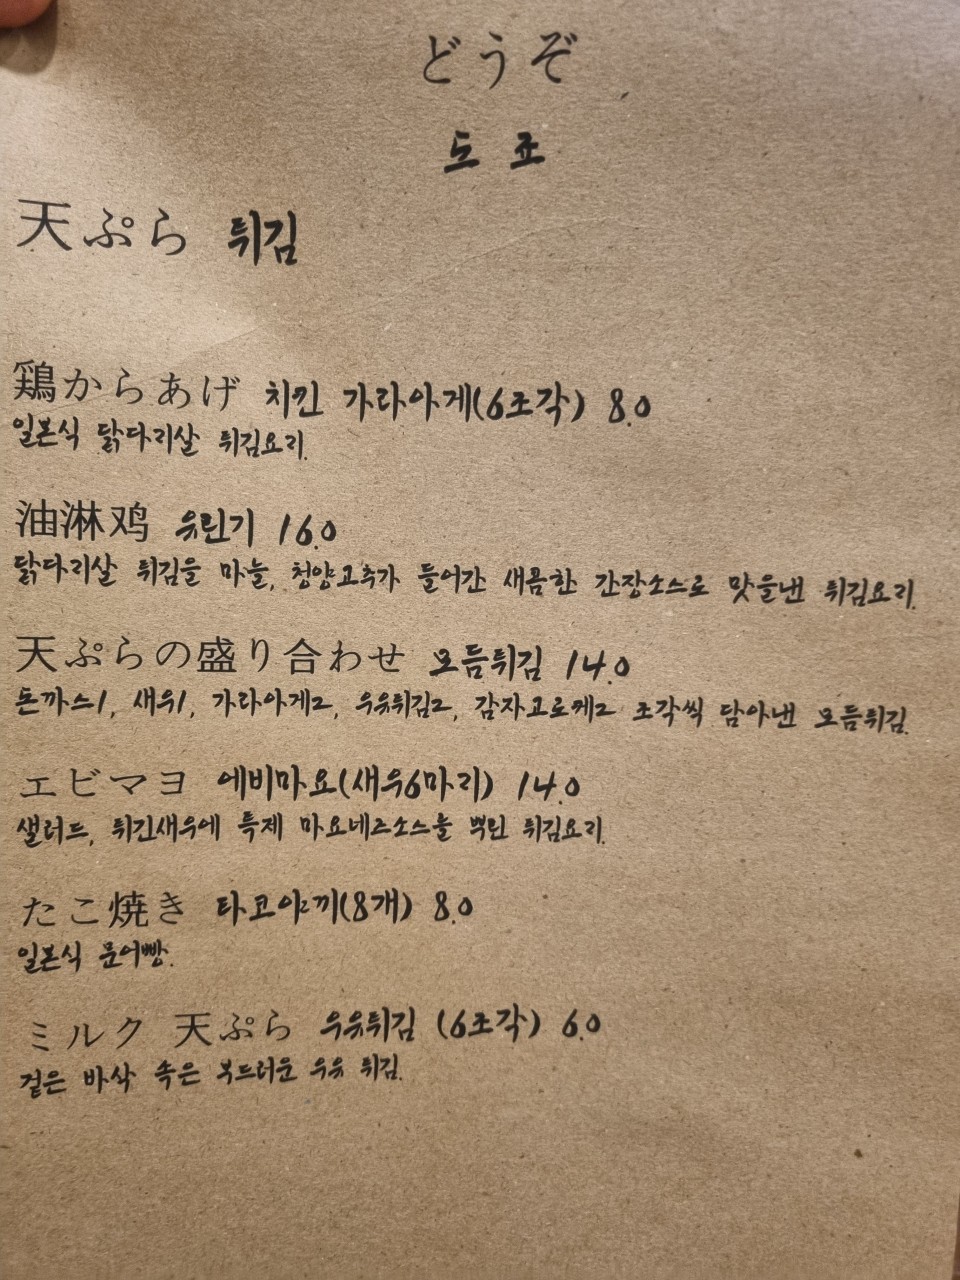 どうぞ
도 죠
天ぷら 튀김
鶏からあげ 치킨 가라아게(6조각) 8.0
일본식 닭다리살 튀김요리.
油淋鸡 유린기 16.0
닭다리살 튀김을 마늘, 청양고추가 들어간 새콤한 간장소스로 맛을낸 튀김요리.
天ぷらの盛り合わせ 모듬튀김 14.0
돈까스1, 새우1, 가라아게2, 우유튀김2, 감자고로케2 조각씩 담아낸 모듬튀김.
エビマヨ 에비마요(새우6마리) 14.0
샐러드, 튀긴새우에 특제 마요네즈소스를 뿌린 튀김요리.
たこ焼き 타코야끼(8개) 8.0
일본식 문어빵.
ミルク 天ぷら 우유튀김 (6조각) 6.0
겉은 바삭 속은 부드러운 우유 튀김.